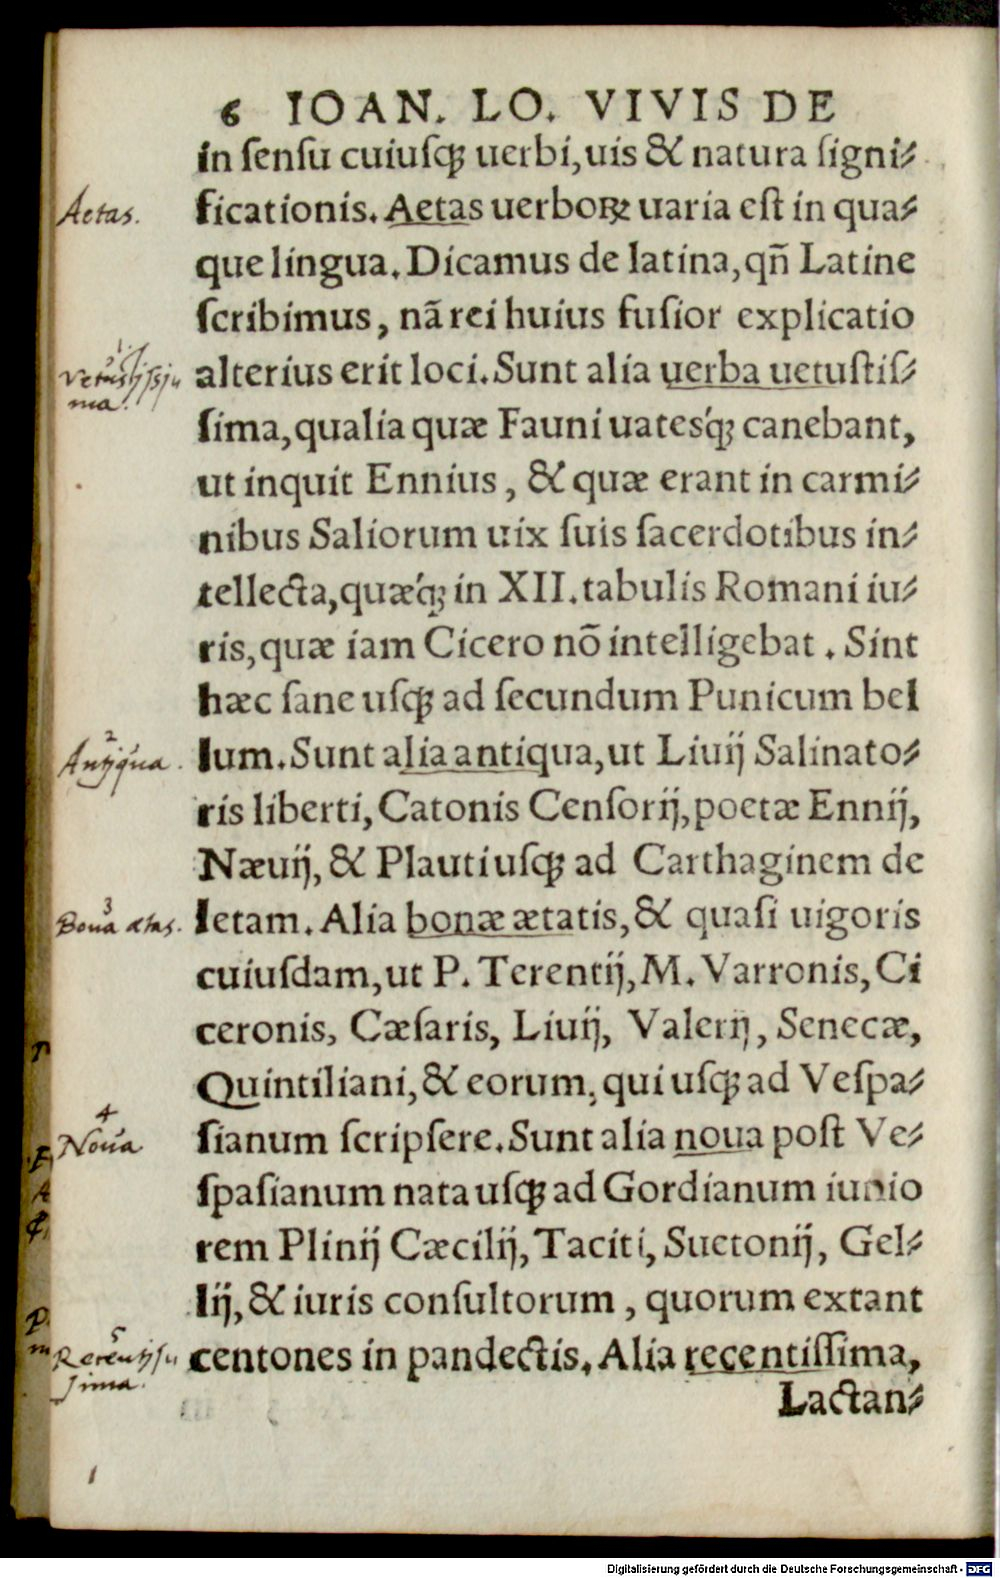 6 IOAN. LO. VIVIS DE
in ſenſu cuiuſqꝫ uerbi, uis & natura ſigni⸗
Aetas. ficationis. Aetas uerboꝝ uaria eſt in qua⸗
que lingua. Dicamus de latina, qñ Latine
ſcribimus, nã rei huius fuſior explicatio
1. Vetustissi alterius erit loci. Sunt alia uerba uetuſtiſ⸗
ma. ſima, qualia quæ Fauni uatesq́ꝫ canebant,
ut inquit Ennius, & quæ erant in carmi⸗
nibus Saliorum uix ſuis ſacerdotibus in⸗
tellecta, quæq́ꝫ in XII. tabulis Romani iu⸗
ris, quæ iam Cicero nõ intelligebat. Sint
hæc ſane uſqꝫ ad ſecundum Punicum bel
2 Antiqua. lum. Sunt alia antiqua, ut Liuij Salinato⸗
ris liberti, Catonis Cenſorij, poetæ Ennij,
Næuij, & Plauti uſqꝫ ad Carthaginem de
3 Bona ætas. letam. Alia bonæ ætatis, & quaſi uigoris
cuiuſdam, ut P. Terentij, M. Varronis, Ci
ceronis, Cæſaris, Liuij, Valerij, Senecæ,
Quintiliani, & eorum, qui uſqꝫ ad Veſpa⸗
4 Noua ſianum ſcripſere. Sunt alia noua poſt Ve⸗
ſpaſianum nata uſqꝫ ad Gordianum iunio
rem Plinij Cæcilij, Taciti, Suetonij, Gel⸗
lij, & iuris conſultorum, quorum extant
5 Recentiſ centones in pandectis. Alia recentiſſima,
ſima. Lactan⸗
Digitalisierung gefördert durch die Deutsche Forschungsgemeinschaft - DFG